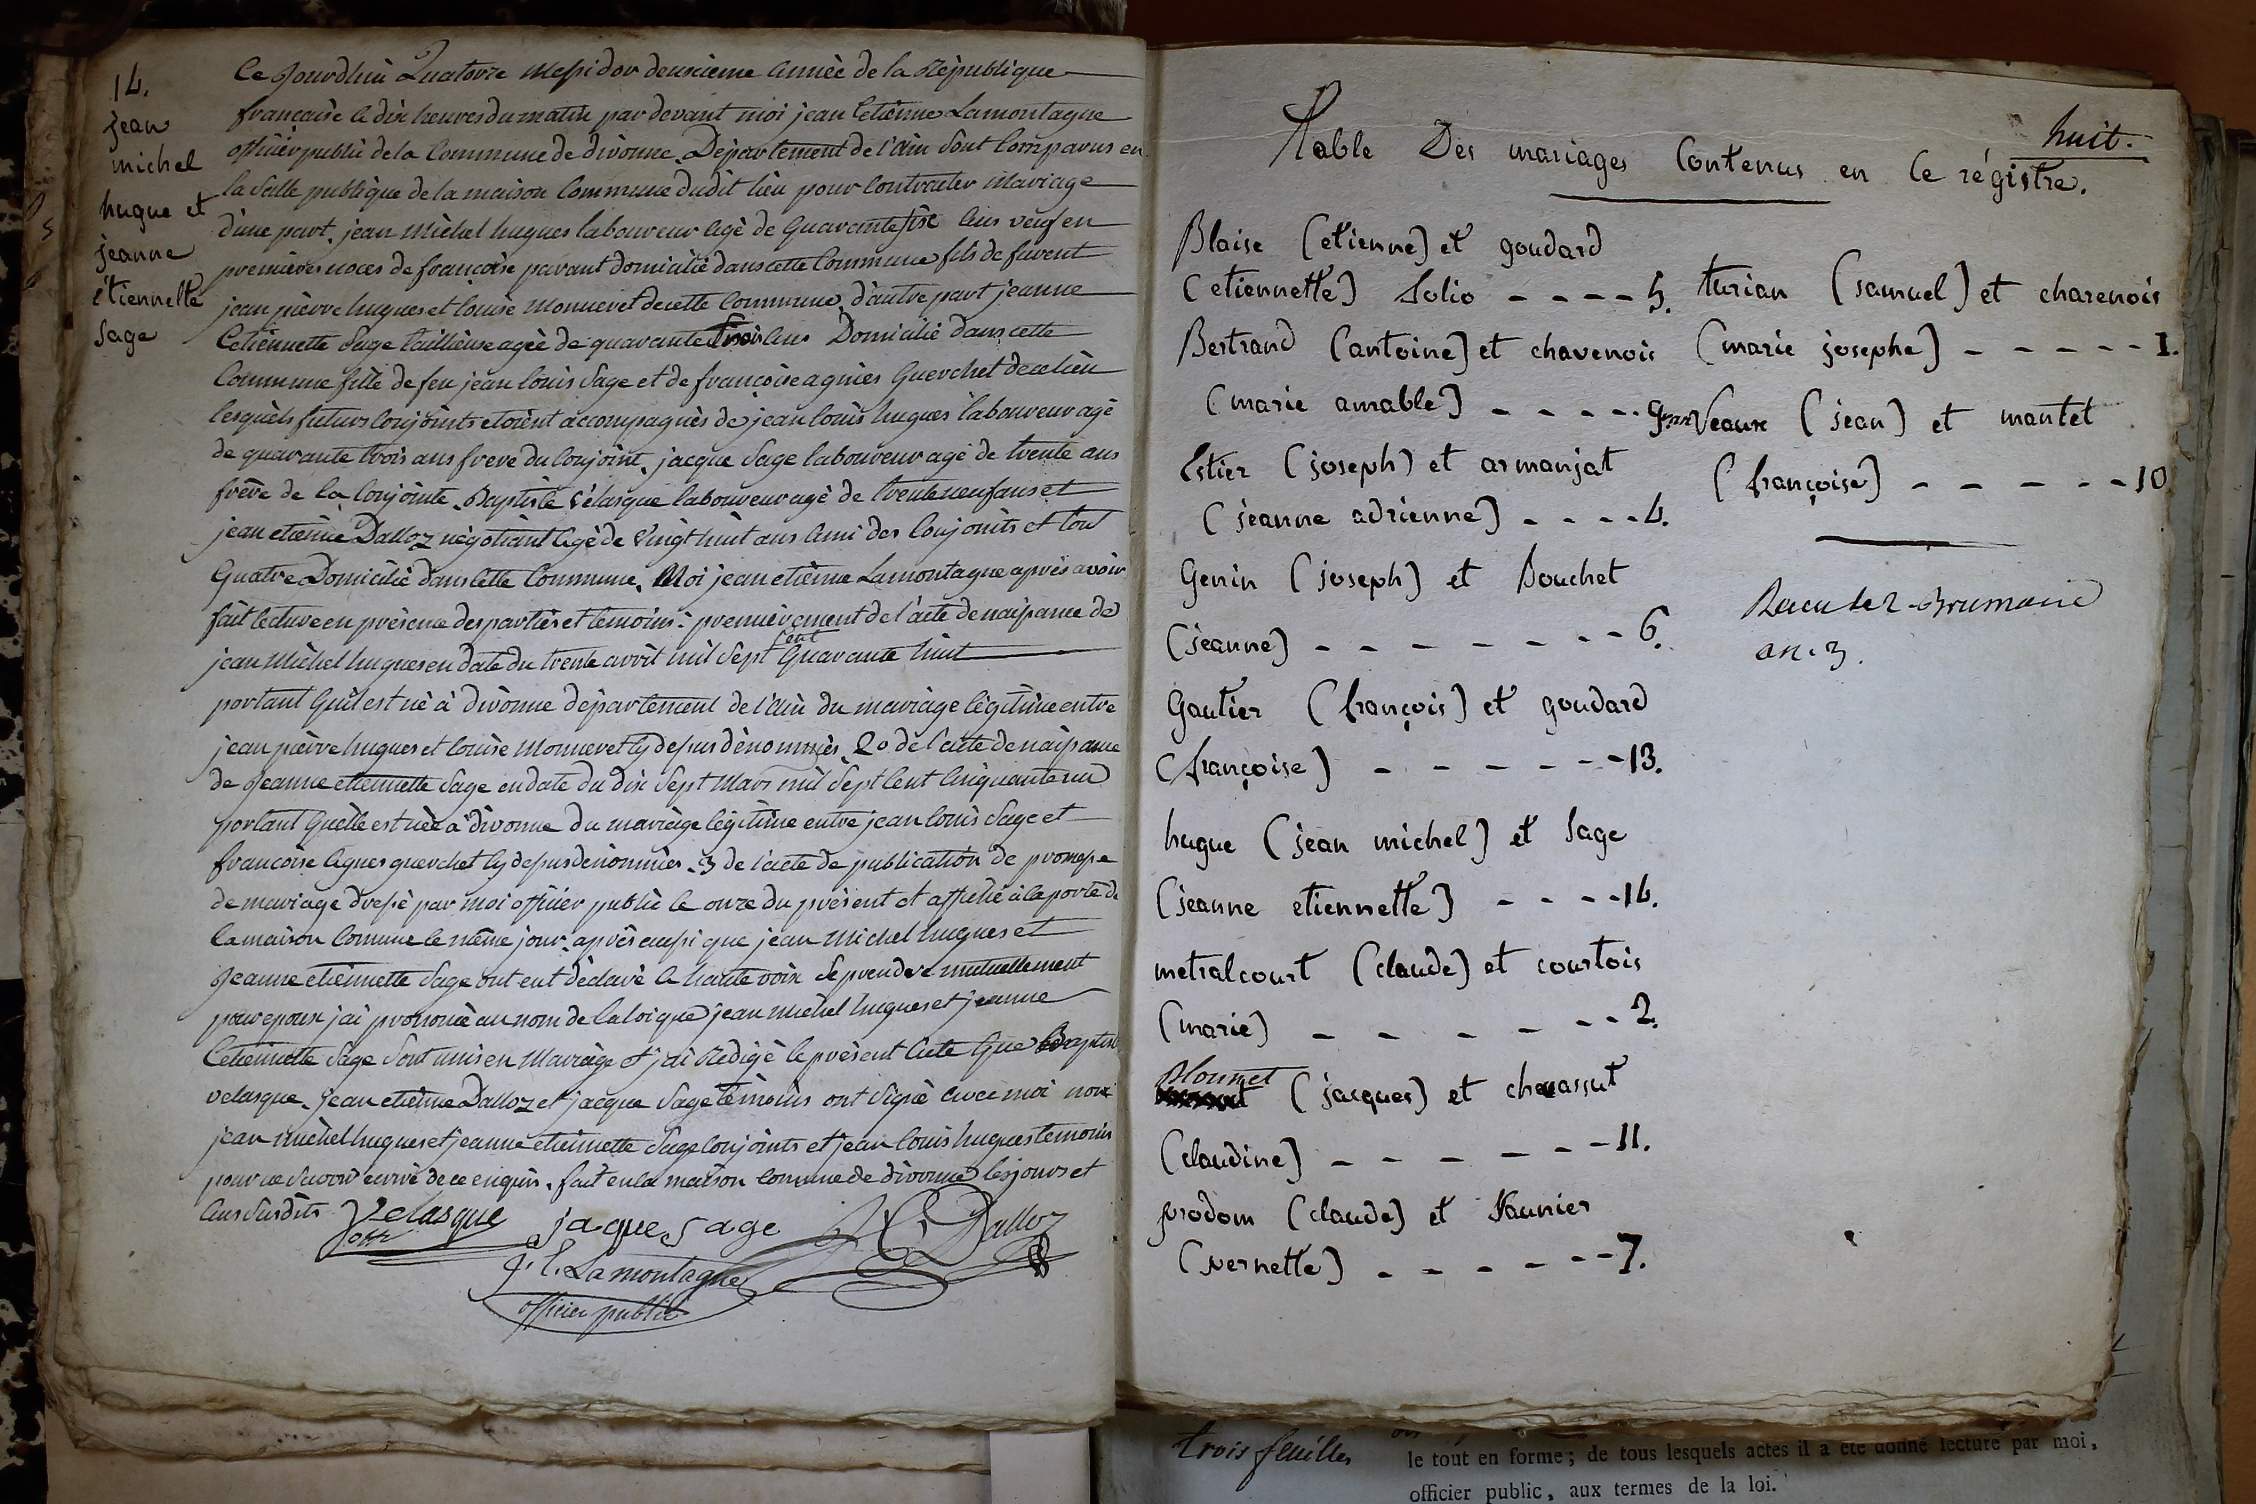 14.
jean
michel
hugue et
jeanne
étiennette
sage
Ce Jourdhui Quatorze Messidor deuxieme année de la République
francaise à dix heures du matin par devant moi jean Etienne Lamontagne
officier public de la Commune de divonne, Département de l'Ain sont Comparus en
la salle publique de la maison Commune dudit lieu pour Contracter Mariage
d'une part, jean Michel hugues laboureur agé de Quarante six ans veuf en
premieres noces de francoise pavant domicilié dans cette Commune fils de furent
jean pierre hugues et louise Monneret de cette Commune, d'autre part jeanne
Etiennette Sage taillieuse agée de quarante trois ans Domicilié dans cette
Commune fille de feu jean louis Sage et de françoise agnies Guerchet de ce lieu
lesquels futurs Conjoints etoient accompagnés de jean louis hugues laboureur agé
de quarante trois ans frere du Conjoint, jacque Sage laboureur agé de trente ans
frère de la Conjointe, Baptiste Vélasque laboureur agé de trente neuf ans et
jean etienne Dalloz négotiant agé de Vingt huit ans ami des Conjoints et tout
Quatre Domicilié dans Cette Commune, Moi jean etienne Lamontagne après avoir
fait lecture en présence des parties et témoins : premièrement de l'acte de naissance de
jean Michel hugues en date du trente avril mil Sept cent Quarante huit
portant Qu'il est né à divonne département de l'Ain du mariage légitime entre
jean pierre hugues et louise Monneret cy dessus dénommés, 2o de l'acte de naissance
de Jeanne etiennette Sage en date du dix Sept Mars mil Sept Cent Cinquante un
portant Quelle est née à divonne du mariage légitime entre jean louis Sage et
francoise Agnes querchet cy dessus dénommées. 3 de l'acte de publication de promesse
de mariage dressé par moi officier public le onze du présent et affiché à la porte de
la maison Comune le même jour, après aussi que jean Michel hugues et
Jeanne etiennette Sage ont eut déclaré à haute voix se prendre mutuellement
pour epoux j'ai prononcé au nom de la loi que jean Michel hugues et jeanne
Etiennette Sage Sont unis en Mariage et j'ai Rédigé le présent Acte Que Baptiste
velasque, jean etienne Dalloz et jacque Sage témoins ont Signé avec moi non
jean Michel hugues et jeanne etiennette Sage Conjoints et jean louis hugues temoins
pour ne Savoir ecrire de ce enquis. fait en la maison Comune de divonne les jours et
Ans Susdits Velasque jaque sage Dalloz
J. E. Lamontagne
officier public
huit.
Table Des mariages Contenus en Ce régistre.
Blaise (etienne) et goudard
(etiennette) folio - - - - 5.
Bertrand (antoine) et chavenois
(marie amable) - - - - - 9
Estier (joseph) et armanjat
(jeanne adrienne) - - - - 4.
Genin (joseph) et Bouchet
(jeanne) - - - - - - - 6.
Gautier (françois) et goudard
(françoise) - - - - - - 13.
hugue (jean michel) et Sage
(jeanne etiennette) - - - - 14.
metralcourt (claude) et courtois
(marie) - - - - - - - 2.
Blounet (jacques) et chavassut
(claudine) - - - - - - - 11.
prodom (claude) et Vaunier
(pernette) - - - - - - 7.
turian (samuel) et charenois
(marie josephe) - - - - - - 1.
Veaux (jean) et mantet
(françoise) - - - - - - 10
Brumaire
an. 3.
trois feuilles
le tout en forme ; de tous lesquels actes il a été donné lecture par moi,
officier public, aux termes de la loi.